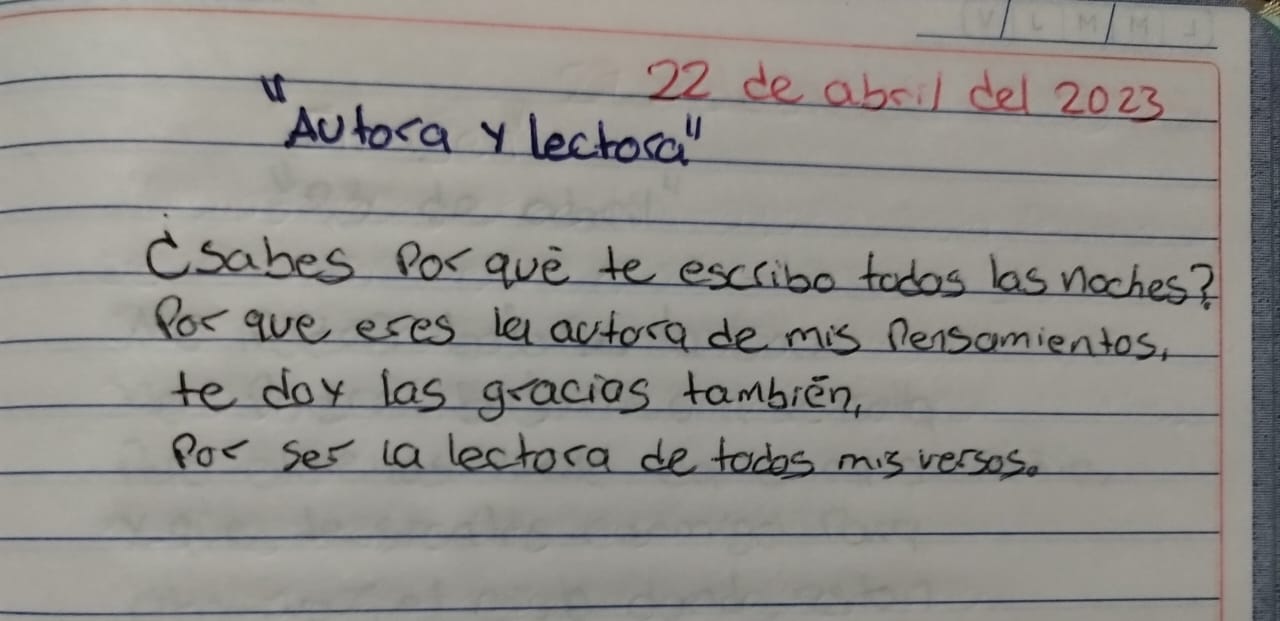 22 de abril del 2023
"Autora y lectora"
¿sabes Por qué te escribo todas las noches?
Por que eres la autora de mis Pensamientos,
te doy las gracias también,
Por ser la lectora de todos mis versos.